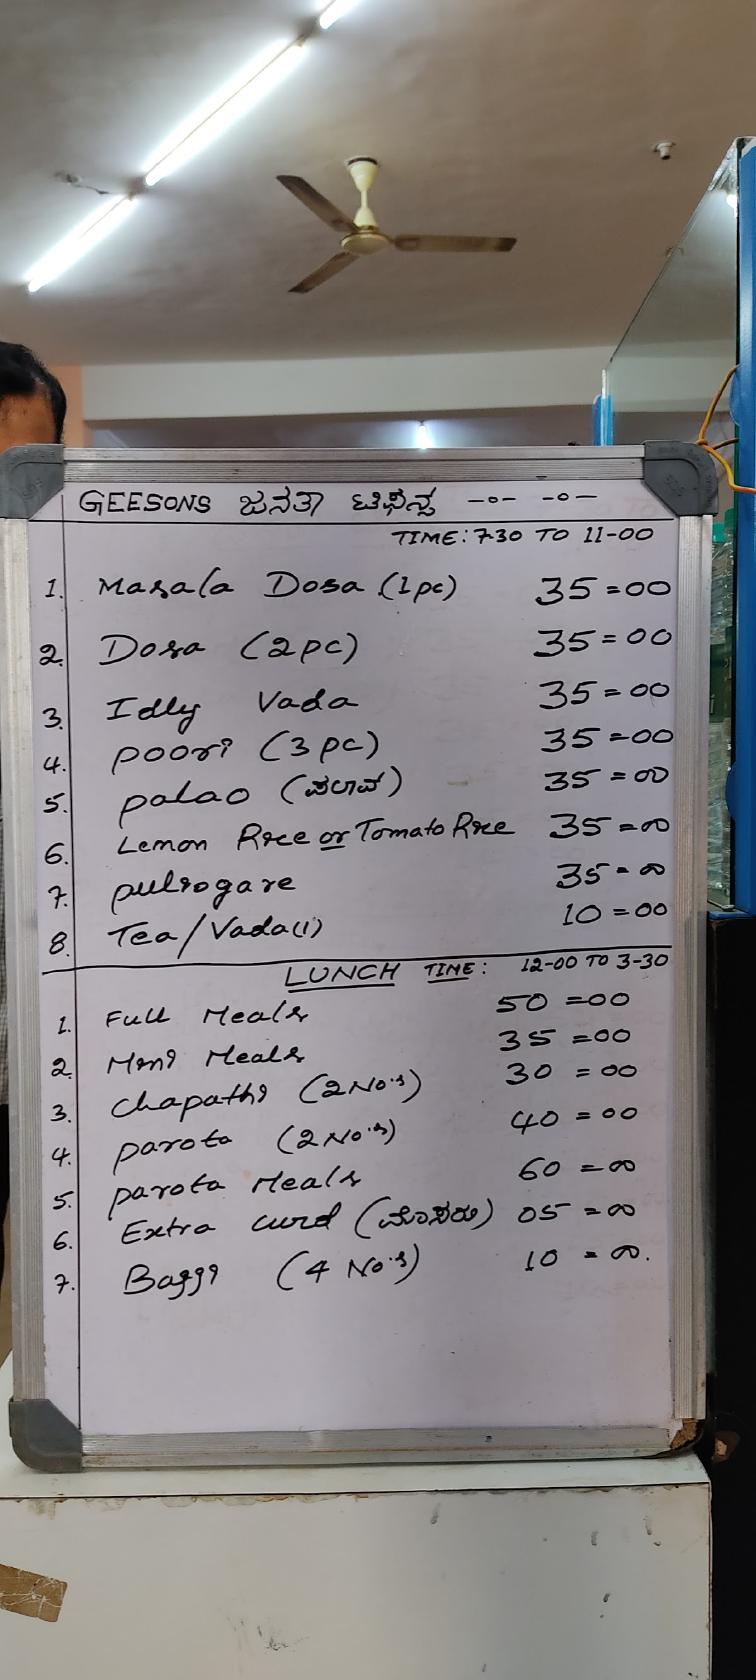 GEESONS ಜನತಾ ಟಿಫಿನ್ಸ -o- -o-
TIME: 7-30 TO 11-00
1. Masala Dosa (1pc) 35=00
2. Dosa (2pc) 35=00
3. Idly Vada 35=00
4. poori (3 pc) 35=00
5. palao (ಪಲಾವ್) 35=00
6. Lemon Rice or Tomato Rice 35=00
7. puliogare 35=00
8. Tea/Vada(1) 10=00
LUNCH TIME: 12-00 TO 3-30
1. Full Meals 50=00
2. Mini Meals 35=00
3. chapathi (2No's) 30=00
4. parota (2No's) 40=00
5. parota Meals 60=00
6. Extra curd (ಮೊಸರು) 05=00
7. Baggi (4 No's) 10=00.